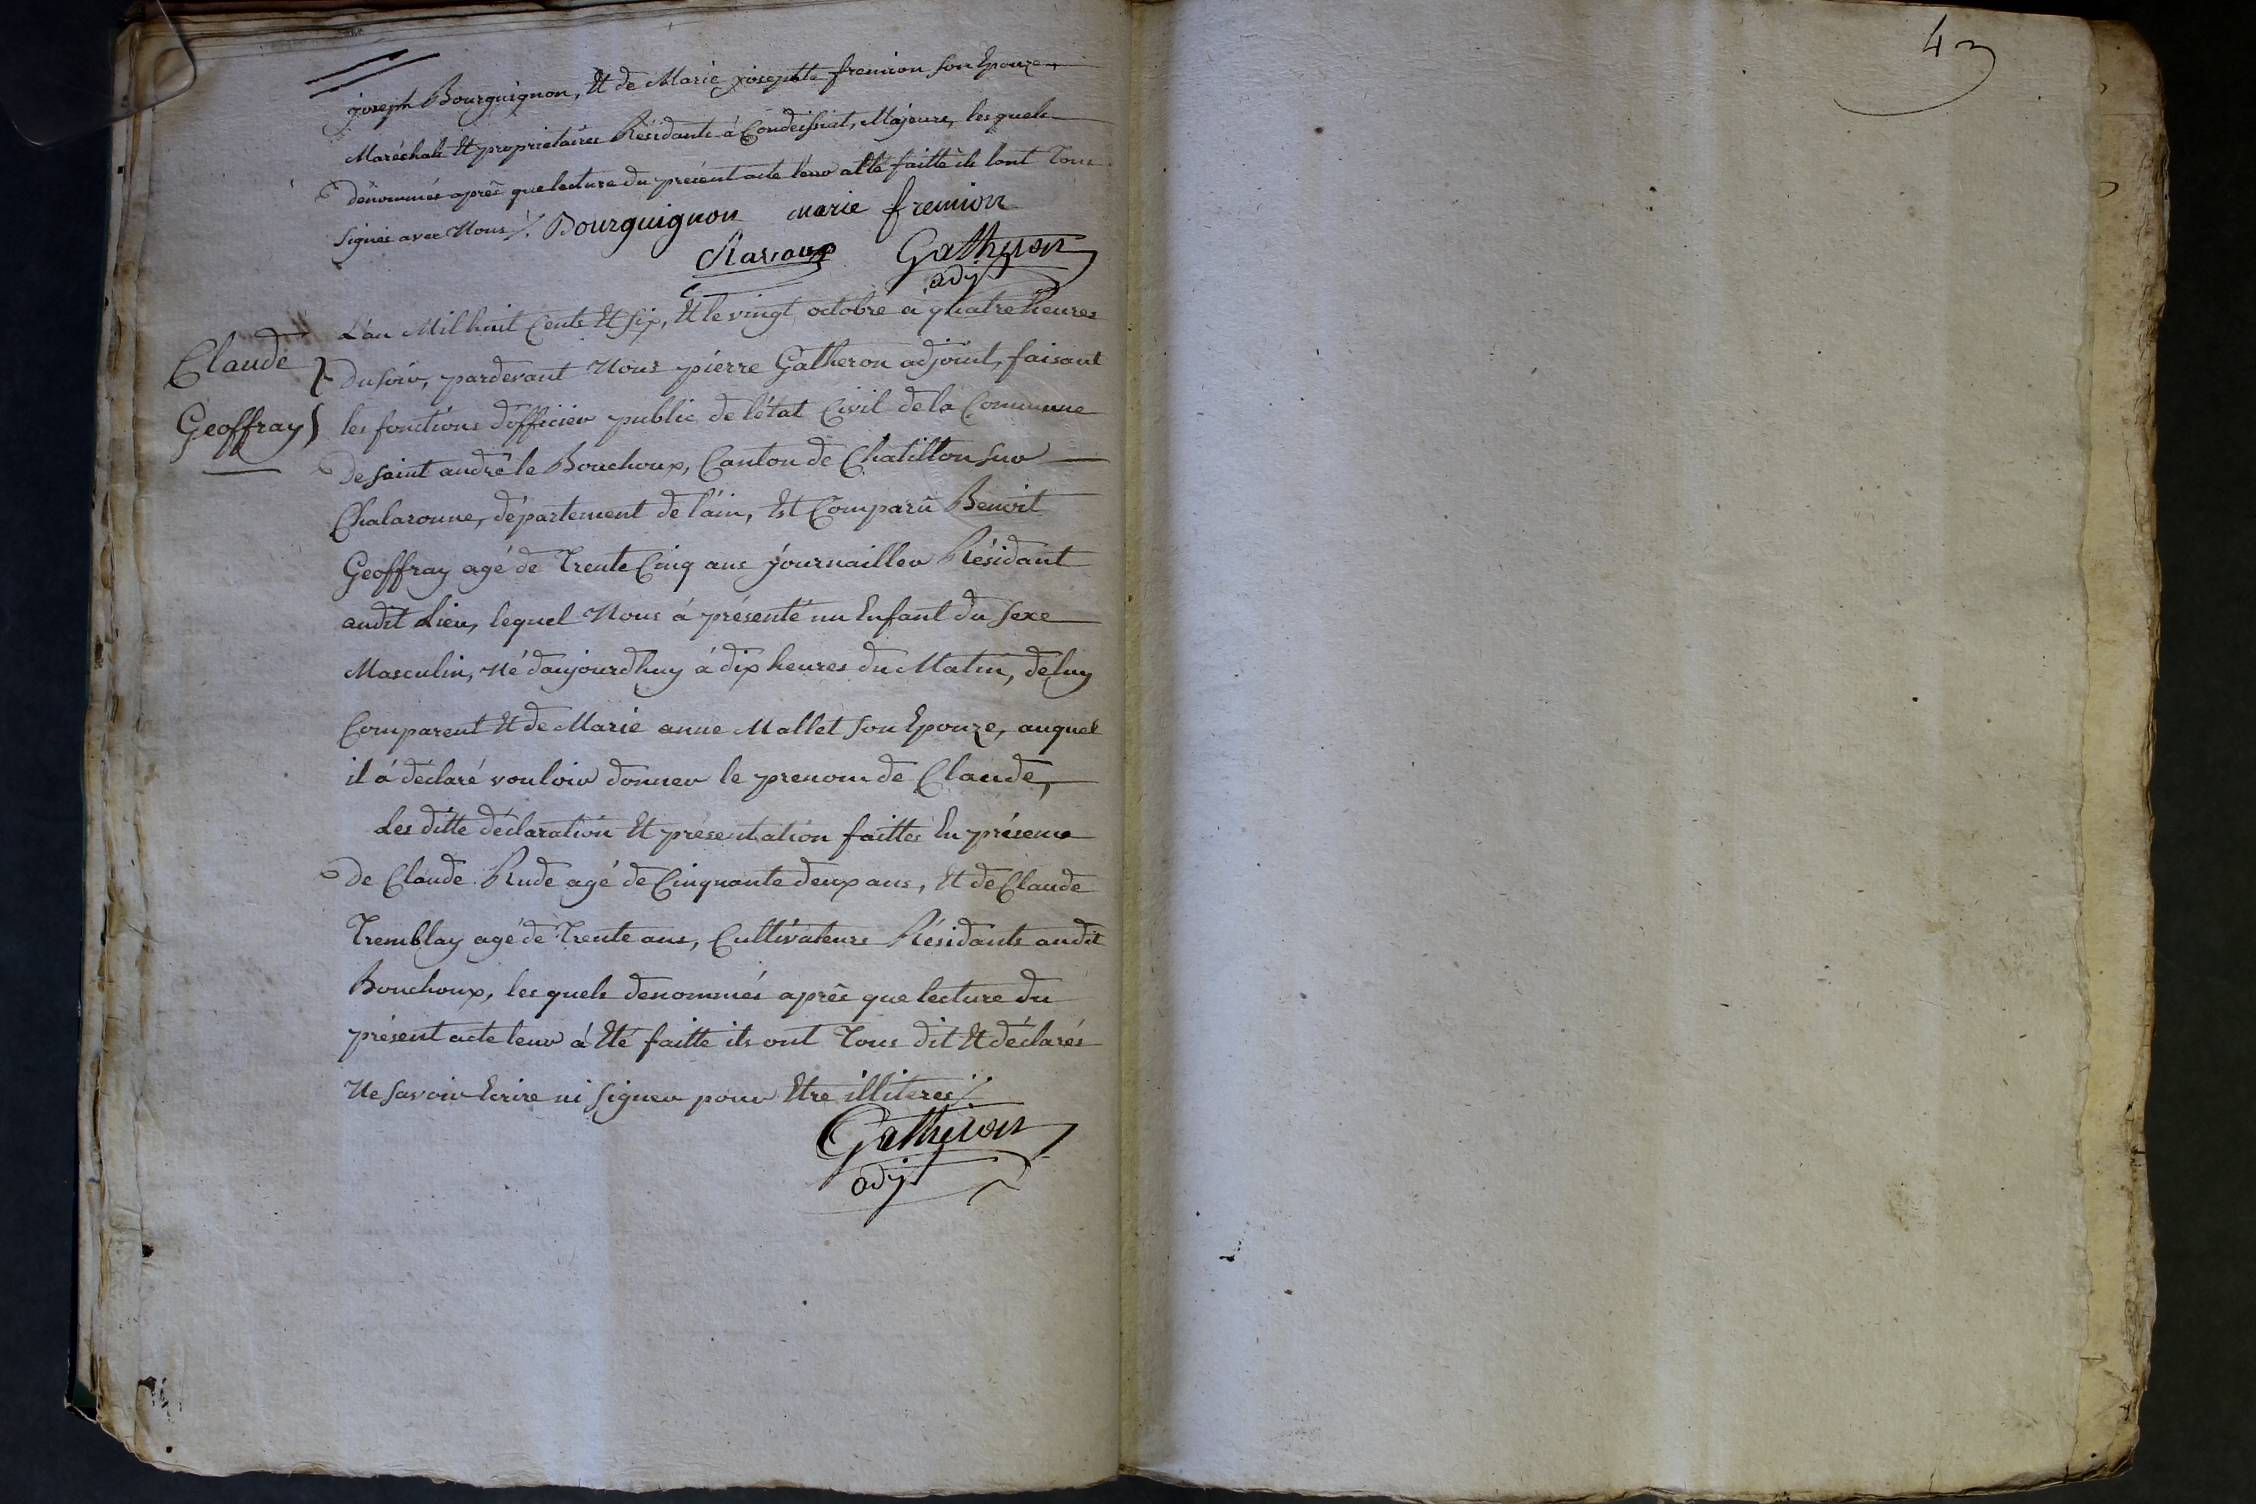 4
joseph Bourguignon, Et de Marie josephte fremion son Epouze,
Maréchale Et proprietaires Résidants á Condeissiat, Majeurs, lesquels
dénommés aprês que lecture du présent acte leur a été faitte ils l'ont Tous
signés avec Nous ./. Bourguignon marie fremion
Gatheron
adjt
Claude
Geoffray
L'an Mil huit Cents Et six, Et le vingt octobre a quatre heures
Du soir, pardevant Nous pierre Gatheron adjoint, faisant
les fonctions d'officier public de l'état Civil de la Commune
de saint andrê le Bouchoux, Canton de Chatillon sur
Chalaronne, département de l'ain, Est Comparû Benoit
Geoffray agé de Trente Cinq ans journaillier Résidant
audit Lieu, lequel Nous á présenté un Enfant du sexe
Masculin, Né daujourdhuy á dix heures du Matin, de luy
Comparent Et de Marie anne Mallet son Epouze, auquel
il á déclaré vouloir donner le prenom de Claude,
Les ditte déclaration Et présentation faittes En présence
de Claude Rude agé de Cinquante deux ans, Et de Claude
Tremblay agé de Trente ans, Cultivateurs Résidants audit
Bouchoux, les quels denommés aprês que lecture du
présent acte leur á Eté faitte ils ont Tous dit Et déclarés
Ne savoir Ecrire ni signer pour Etre illiteres ./.
Gatheron
adjt